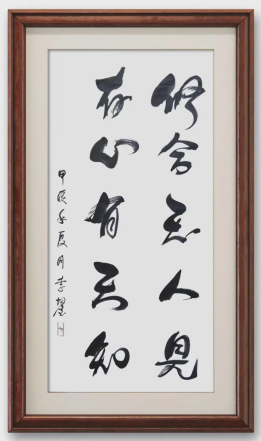 修合无人見
存心有天知
甲辰年夏月李